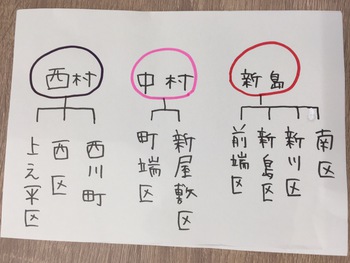 西村
中村
新島
上え平区
西区
西川町
町端区
新屋敷区
前端区
新島区
新川区
南区